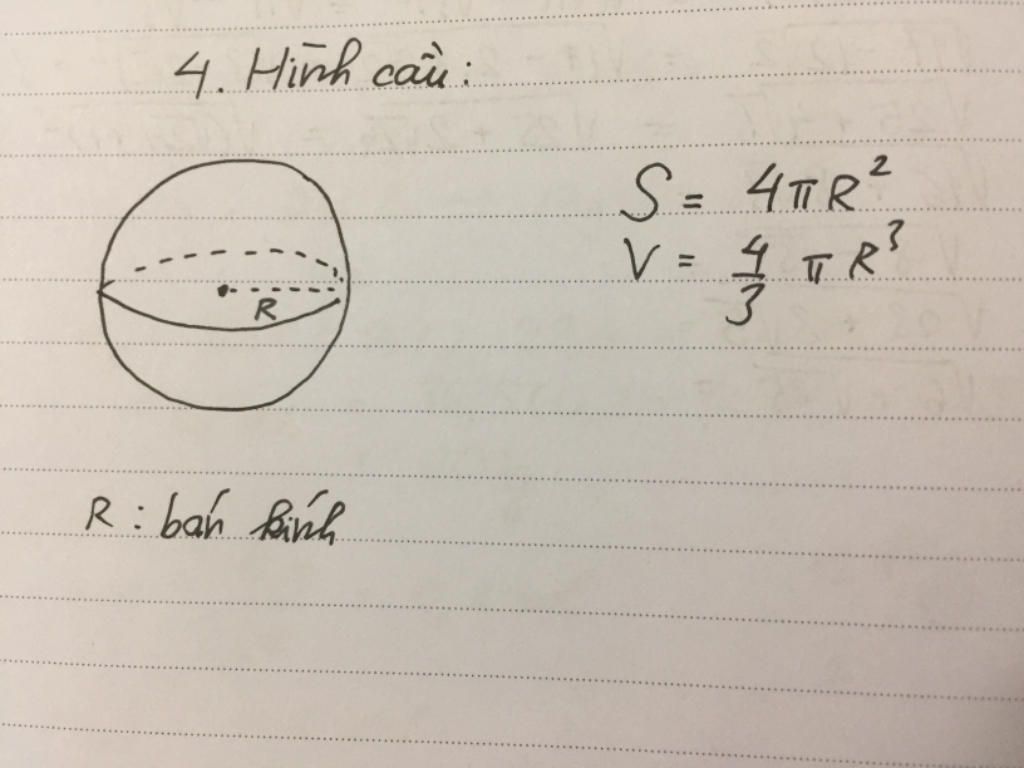 4. Hình cầu:
S = 4πR²
V = 4/3 πR³
R
R : bán kính